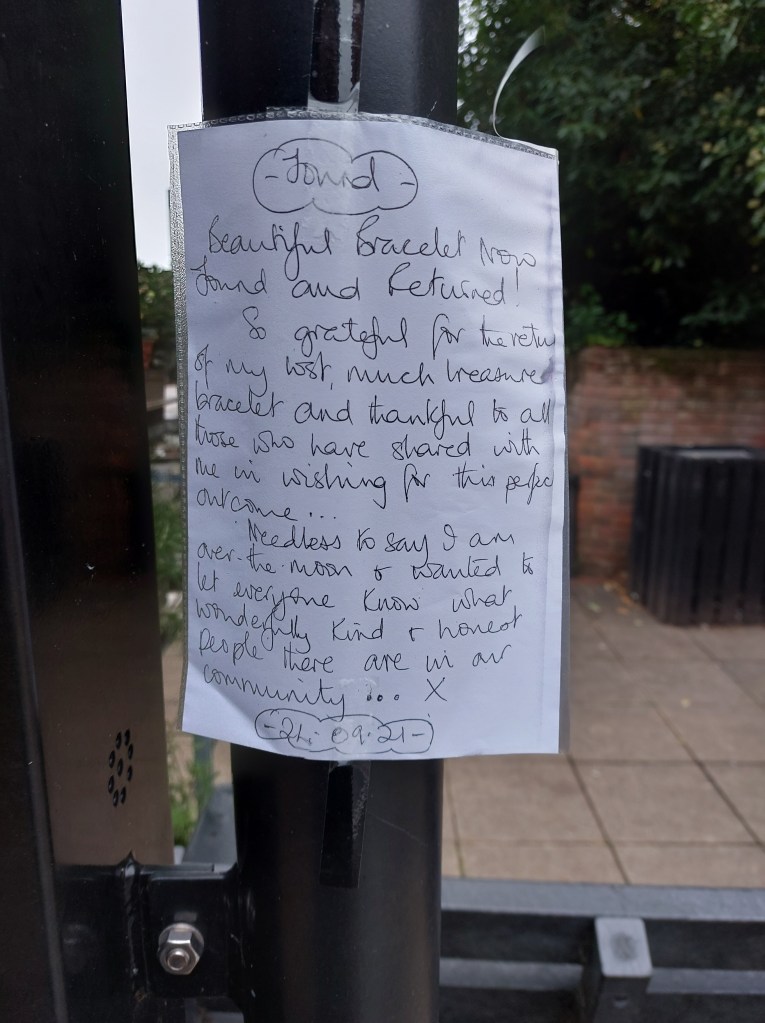 - Found -
Beautiful Bracelet Now
Found and Returned!
So grateful for the retu
of my lost, much treasure
bracelet and thankful to all
those who have shared with
me in wishing for this perfec
outcome...
Needless to say I am
over-the-moon & wanted to
let everyone know what
wonderfully kind & honest
people there are in our
community... X
- 21.09.21 -